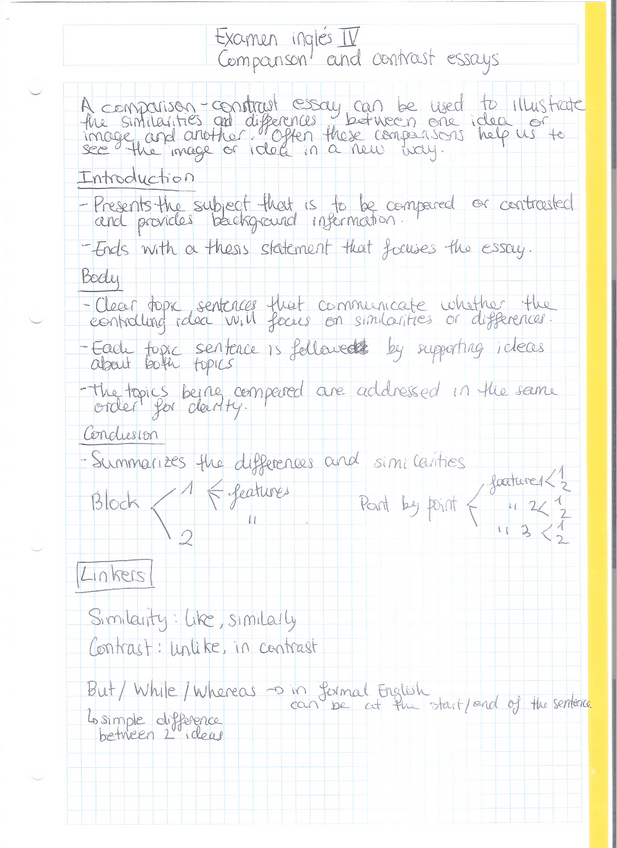 Examen inglés IV
Comparison and contrast essays
A comparison-constrast essay can be used to illustrate
the similarities and differences between one idea or
image and another. Often these comparisons help us to
see the image or idea in a new way.
Introduction
- Presents the subject that is to be compared or contrasted
and provides background information.
- Ends with a thesis statement that focuses the essay.
Body
- Clear topic sentences that communicate whether the
controlling idea will focus on similarities or differences.
- Each topic sentence is followed by supporting ideas
about both topics
- The topics being compared are addressed in the same
order for clarity.
Conclusion
- Summarizes the differences and similarities
Block < 1 < features
"
2
Point by point < features < 1 2
" 2 < 1 2
" 3 < 1 2
Linkers
Similarity: like, similarly
Contrast: unlike, in contrast
But / While / Whereas → in formal English
can be at the start/end of the sentence
↳ simple difference
between 2 ideas